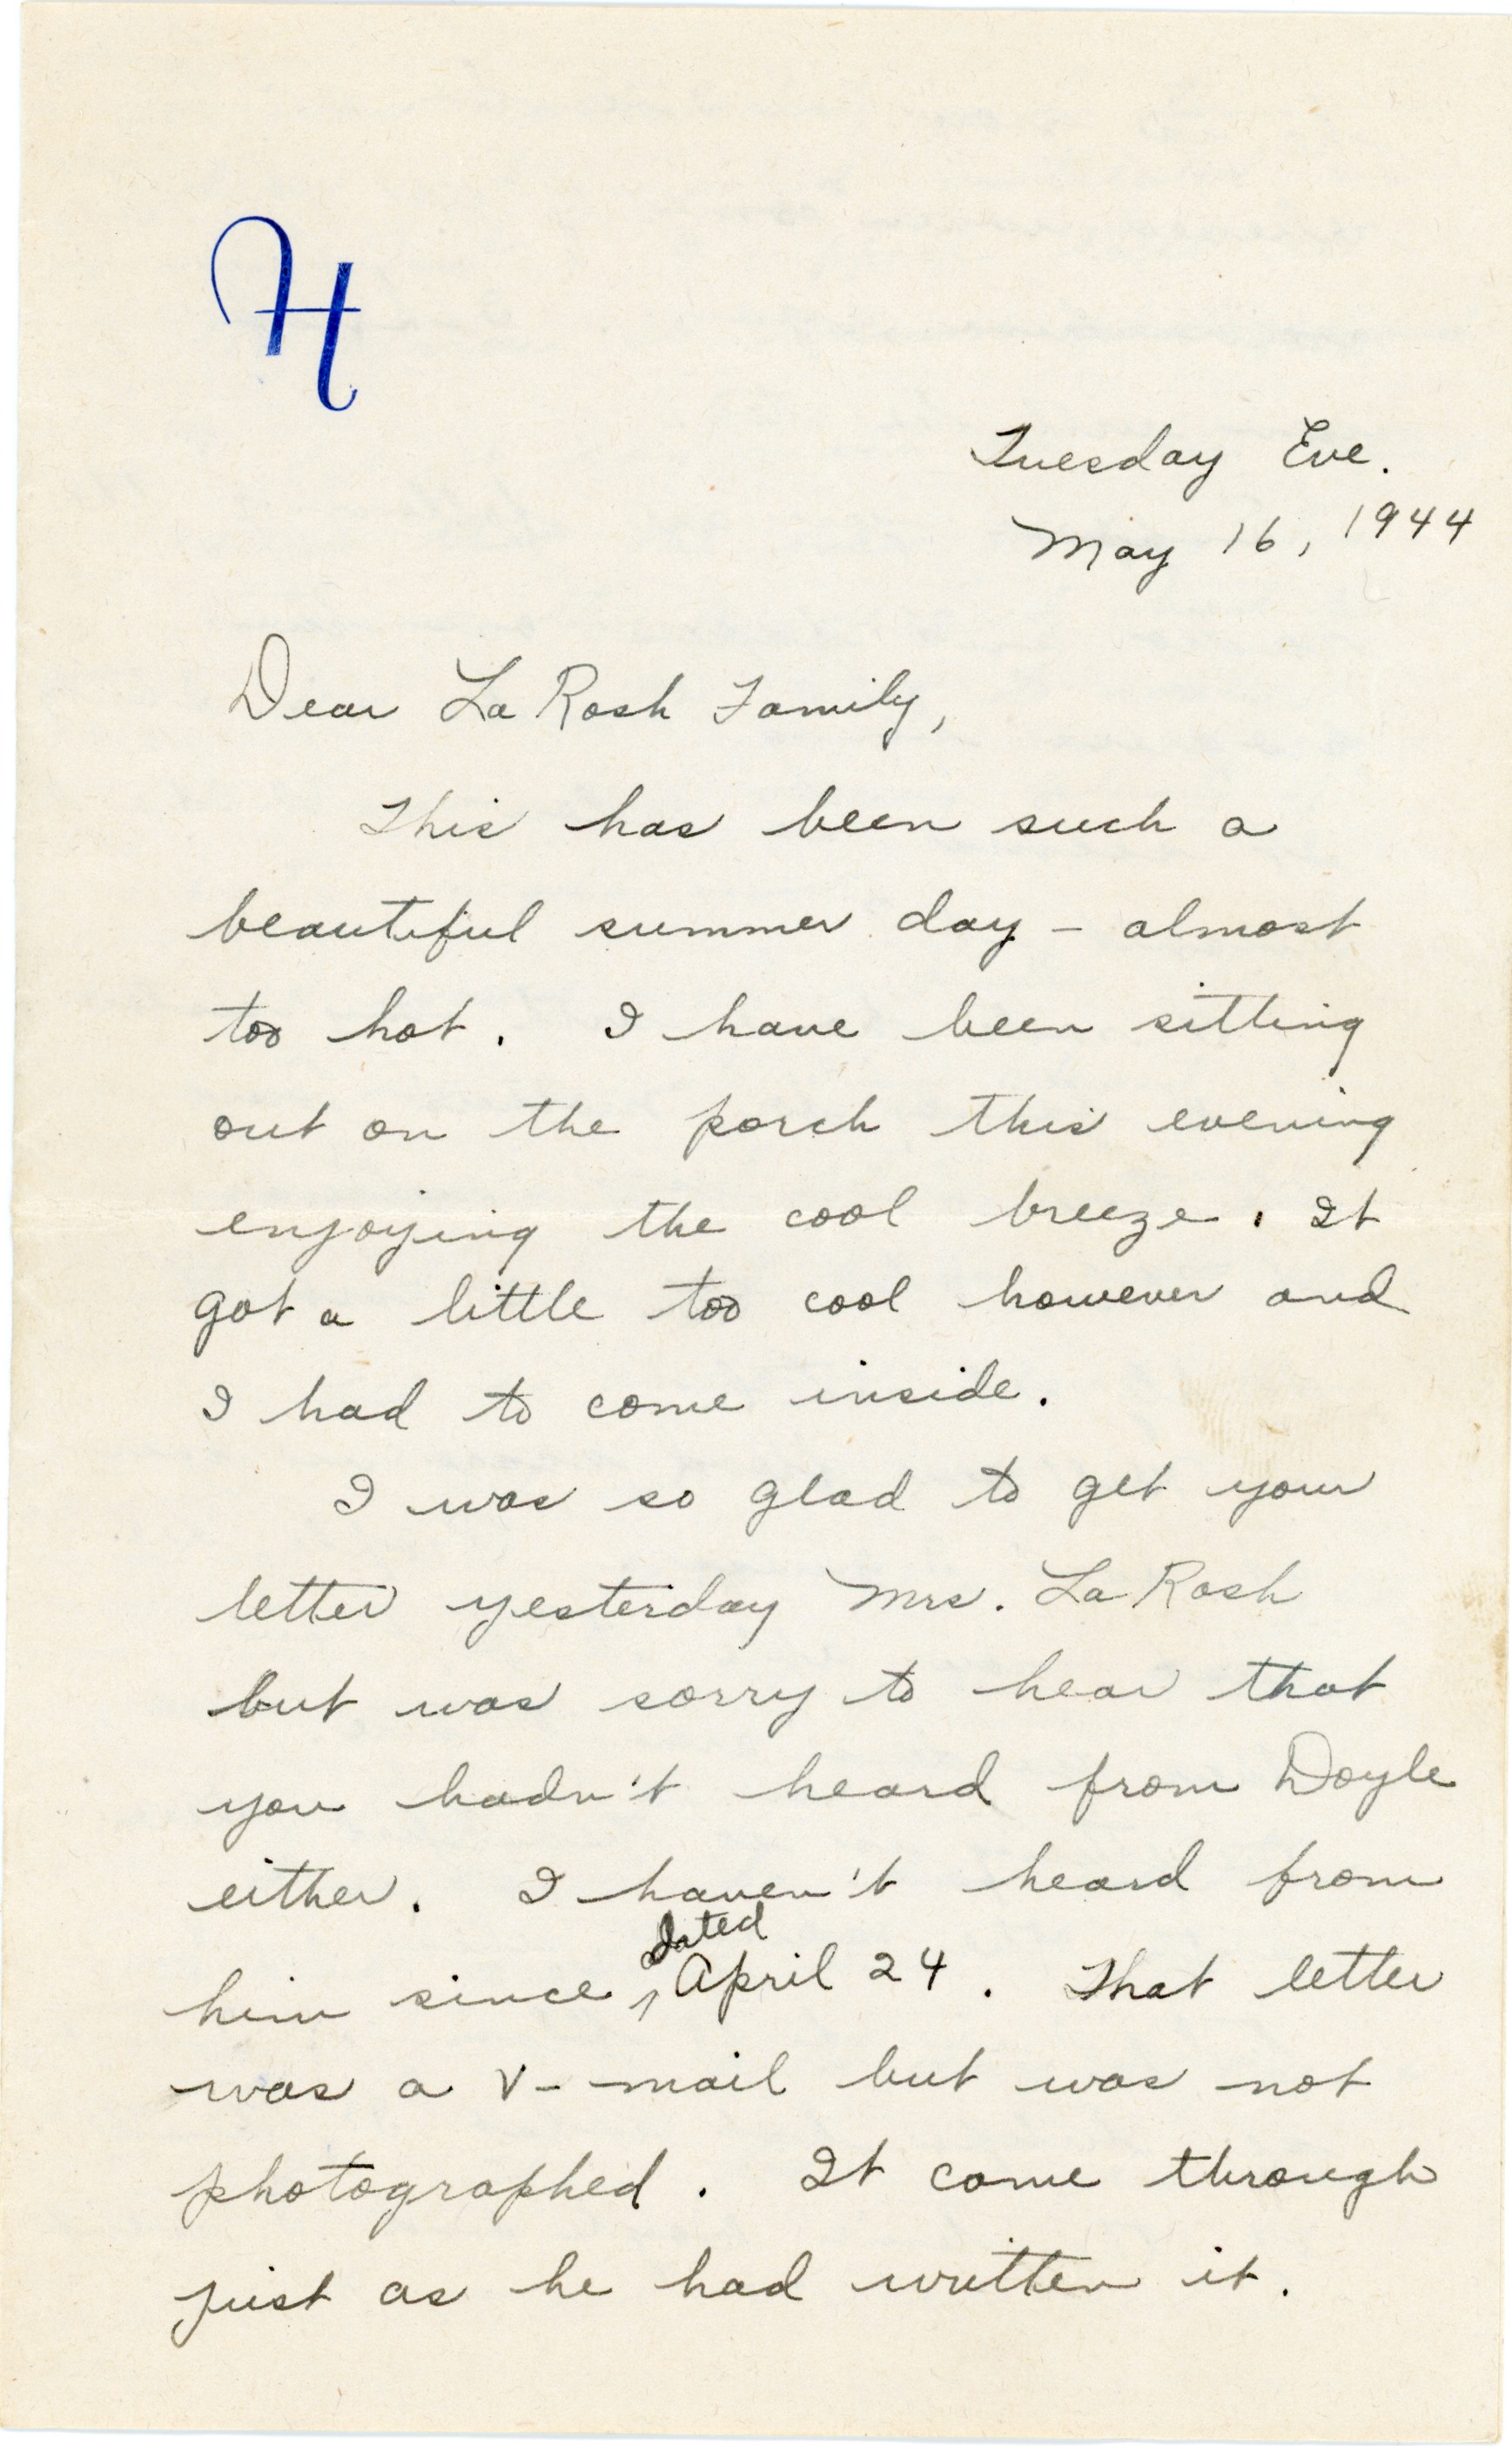 H
Tuesday Eve.
May 16, 1944
Dear La Rosh Family,
This has been such a
beautiful summer day - almost
too hot. I have been sitting
out on the porch this evening
enjoying the cool breeze. It
got a little too cool however and
I had to come inside.
I was so glad to get your
letter yesterday Mrs. La Rosh
but was sorry to hear that
you hadn't heard from Doyle
either. I haven't heard from
dated
him since ^ April 24. That letter
was a V-mail but was not
photographed. It came through
just as he had written it.